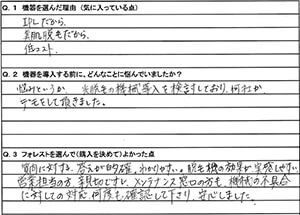 Q. 1 機器を選んだ理由（気に入っている点）
IPLだから。
美肌脱毛だから。
低コスト。
Q. 2 機器を導入する前に、どんなことに悩んでいましたか？
悩みというか、光脱毛の機械導入を検討しており、何社か
デモをして頂きました。
Q. 3 フォレストを選んで（購入を決めて）よかった点
質問に対する、答えが的確。わかりやすい。脱毛機の効果が実感しやすい。
営業担当の方、親切ですし、メンテナンス窓口の方も、機械の不具合
に対しての対応、何度も確認して下さり、安心しました。